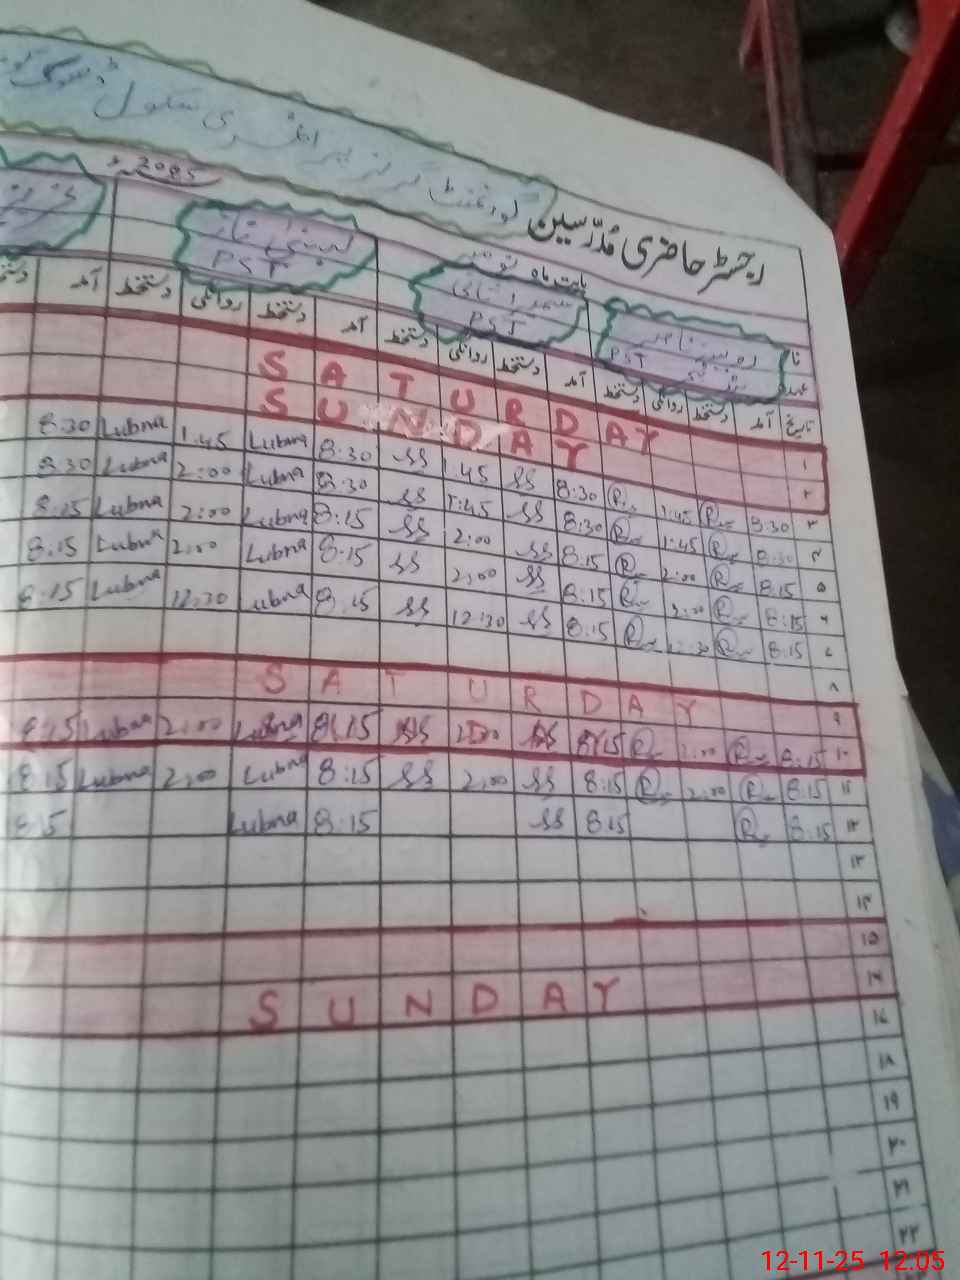 گورنمنٹ گرلز پرائمری سکول
رجسٹر حاضری مُدرّسین
بابت ماہ نومبر 2025
نا
روبینہ ناصر PST
ثمینہ PST
لبنیٰ ناز PST
عہد
تاریخ آمد دستخط روانگی دستخط آمد دستخط روانگی دستخط آمد دستخط روانگی دستخط آمد
۱ SATURDAY
۲ SUNDAY
۳ 8:30 R 1:45 R 8:30 SS 1:45 SS 8:30 Lubna 1:45 Lubna 8:30
۴ 8:30 R 1:45 R 8:30 SS 1:45 SS 8:30 Lubna 2:00 Lubna 8:30
۵ 8:15 R 2:00 R 8:15 SS 2:00 SS 8:15 Lubna 2:00 Lubna 8:15
۶ 8:15 R 2:00 R 8:15 SS 2:00 SS 8:15 Lubna 2:00 Lubna 8:15
۷ 8:15 R 12:30 R 8:15 SS 12:30 SS 8:15 Lubna 12:30 Lubna 8:15
۸ SATURDAY
۹
۱۰ 8:15 R 2:00 R 8:15 SS 2:00 SS 8:15 Lubna 2:00 Lubna 8:15
۱۱ 8:15 R 2:00 R 8:15 SS 2:00 SS 8:15 Lubna 2:00 Lubna 8:15
۱۲ 8:15 R 8:15 SS 8:15 Lubna 8:15
۱۳
۱۴
۱۵
۱۶ SUNDAY
۱۷
۱۸
۱۹
۲۰
۲۱
۲۲
12-11-25 12:05